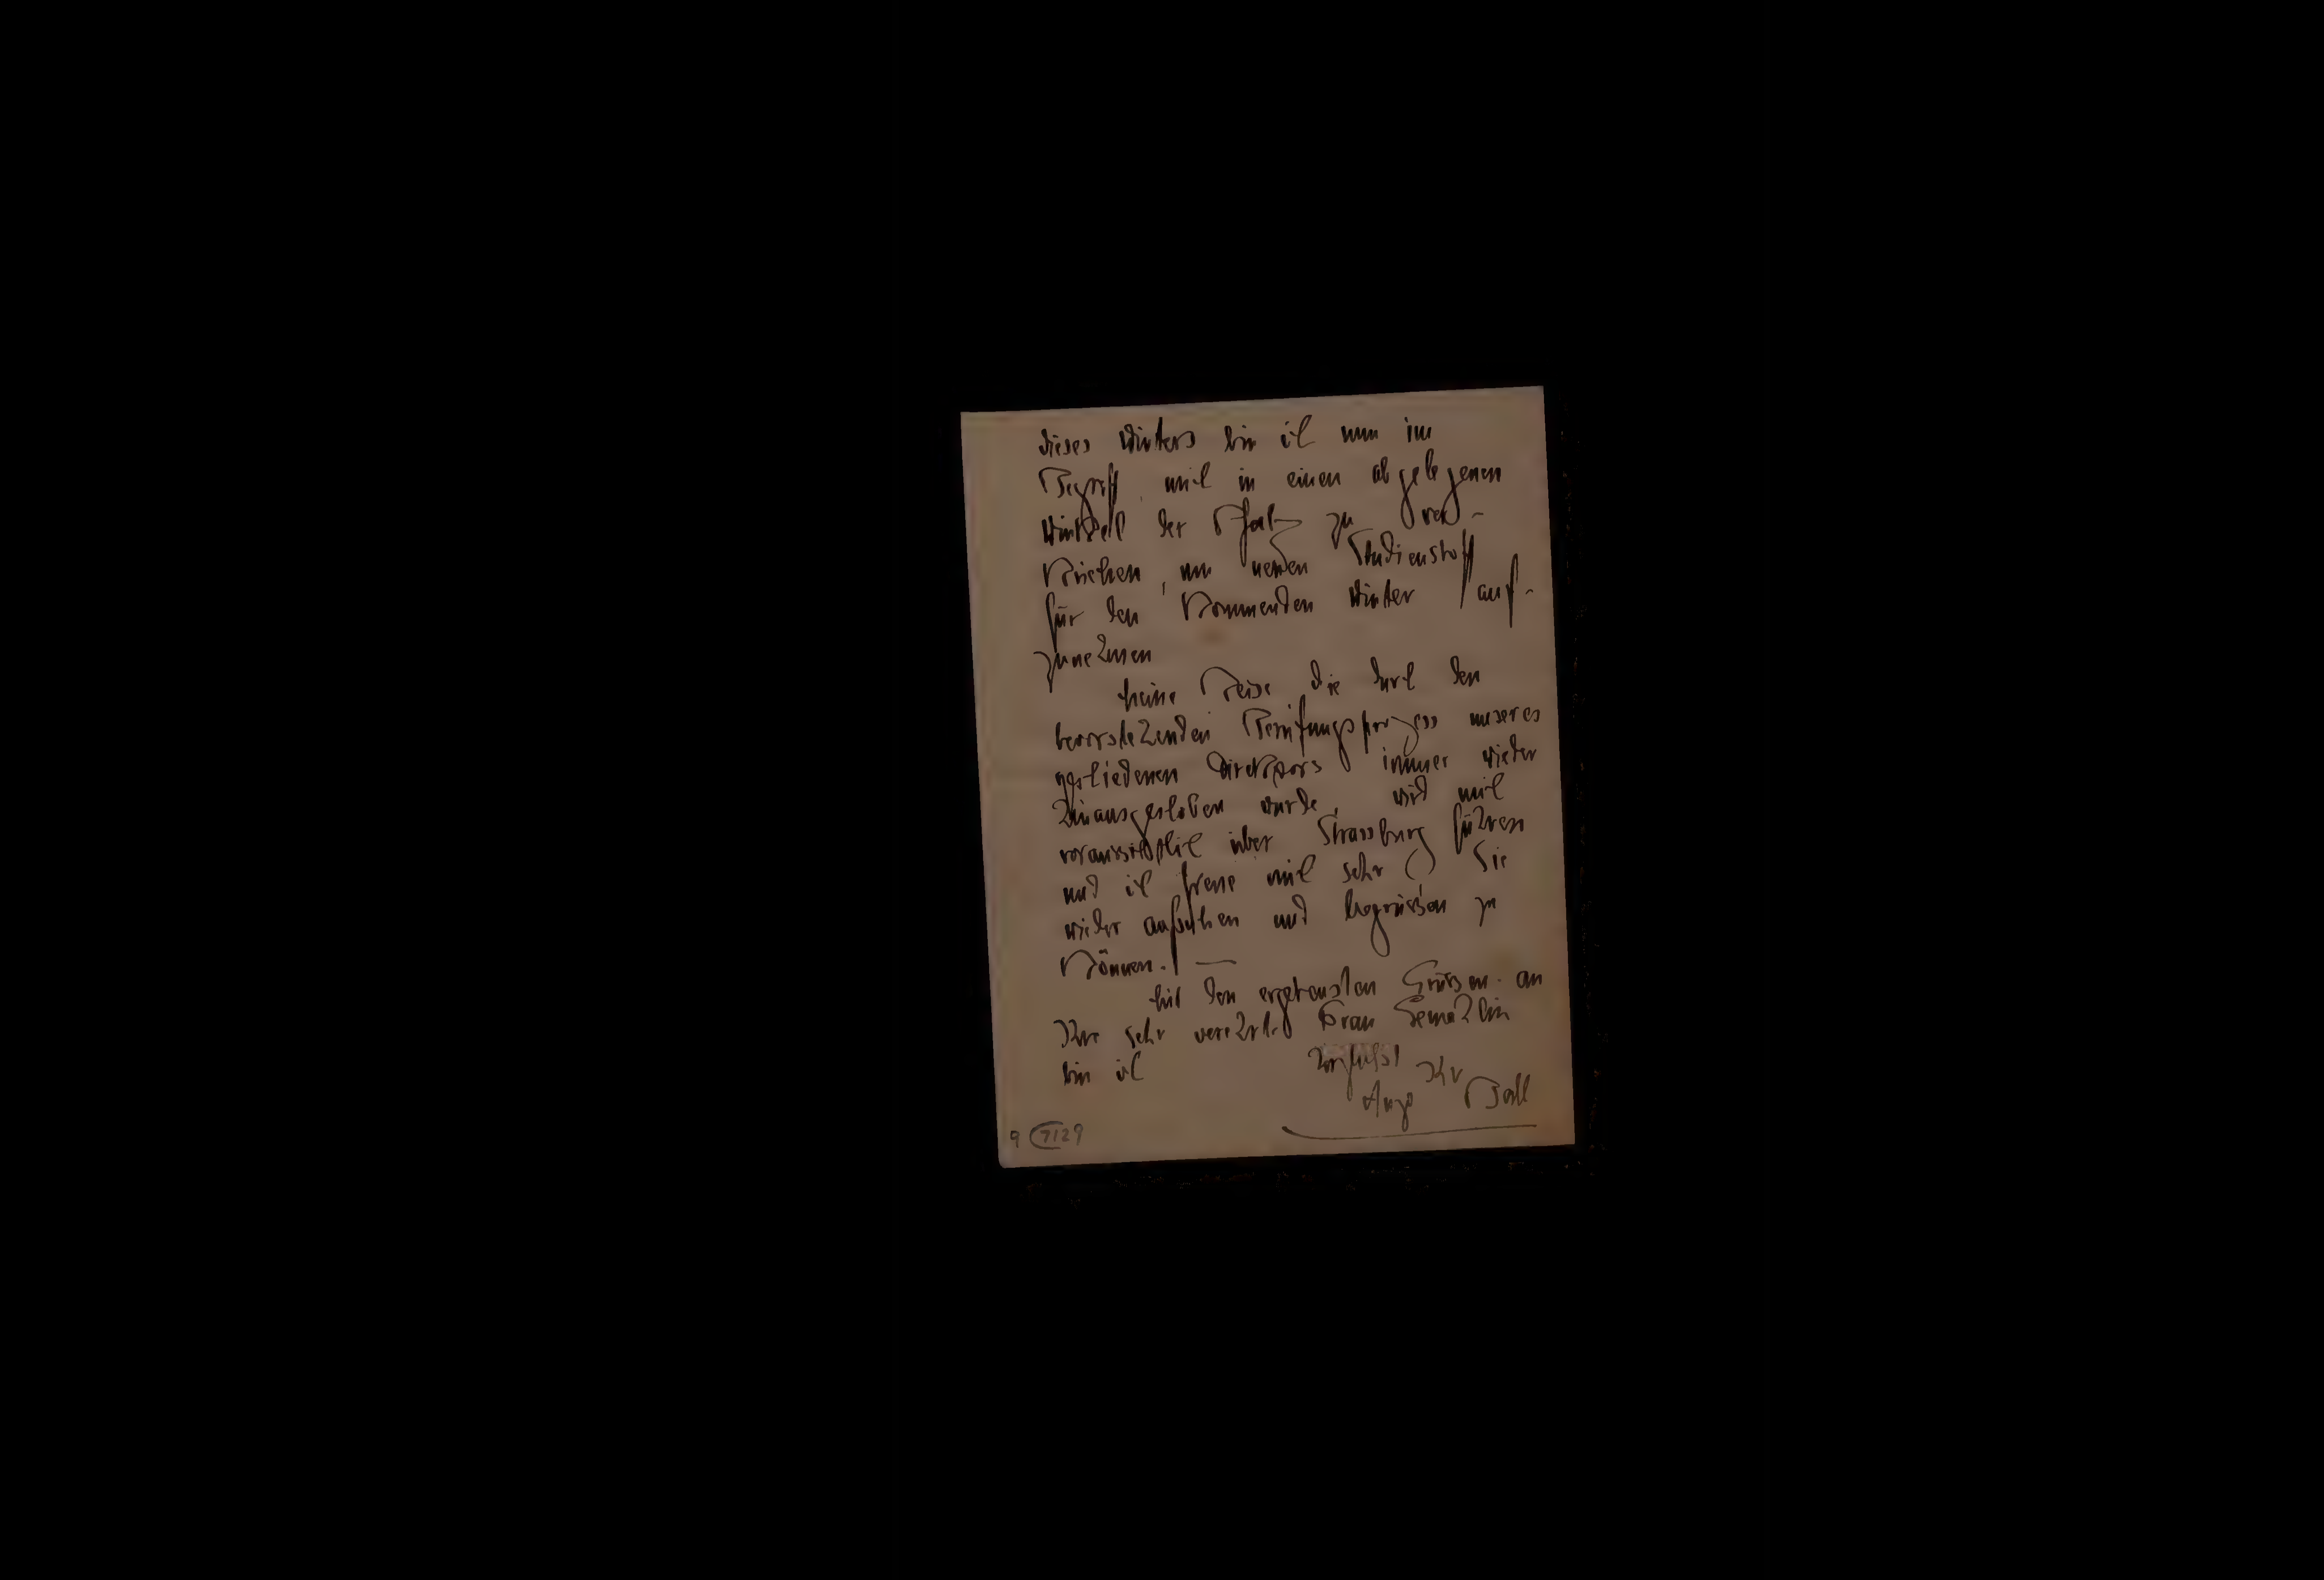 dieses Winters bin ich nun im
Begriff, mich in einen abgelegenen
Winkel der Pfalz zu ver-
kriechen, um neuen Studienstoff
für den kommenden Winter auf-
zunehmen
Meine Reise die durch den
bevorstehenden Berufungsprozess unseres
geschiedenen Direktors immer wieder
hinausgeschoben wurde, wird mich
voraussichtlich über Strassburg führen
und ich freue mich sehr Sie
wieder aufsuchen und begrüssen zu
können. —
Mit den ergebensten Grüssen an
Ihre sehr verehrte Frau Gemahlin
bin ich
Ihr
Hugo Ball
9 7129